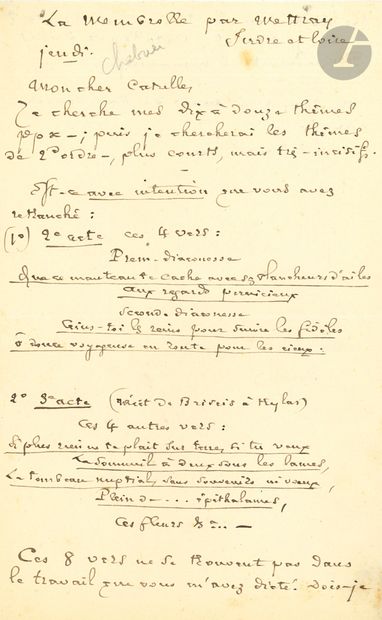 La Membrolle par Mettray
Indre et Loire
jeudi.
Chabrier
Mon cher Catulle,
Je cherche mes dix à douze thèmes
ppx —; puis je chercherai les thèmes
de 2e ordre —, plus courts, mais très-incisifs.
Est-ce avec intention que vous avez
retranché :
(1o) 2e acte ces 4 vers :
Prem. diaconesse
Que ce manteau te cache avec ses blancheurs d'ailes
aux regards pernicieux
Seconde diaconesse
Ceins-toi les reins pour suivre les fidèles
ô douce voyageuse en route pour les cieux.
2o 3e acte (récit de Briséis à Hylas)
Ces 4 autres vers :
Si plus rien ne te plaît sur terre, si tu veux
Le sommeil à deux sous les lames,
Le tombeau nuptial, sans souvenirs ni vœux,
Plein de... épithalames,
Ces fleurs &c... —
Ces 8 vers ne se trouvent pas dans
le travail que vous m'avez dicté. Dois-je